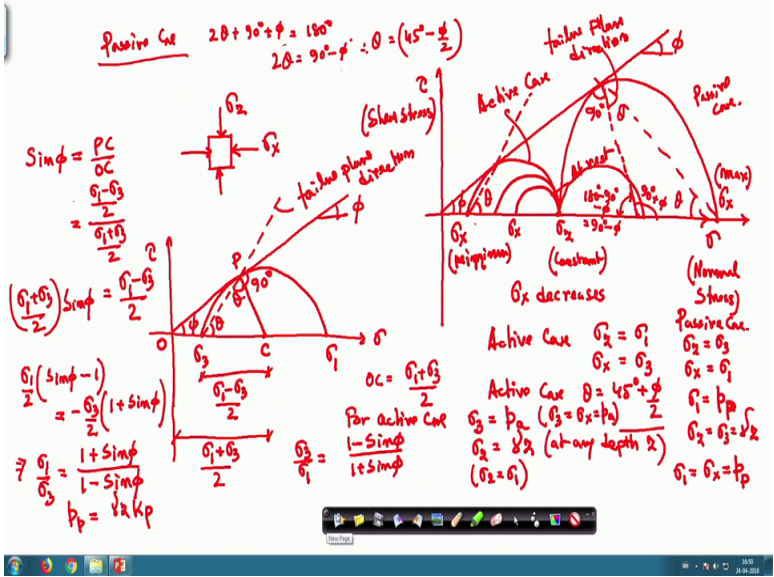 Passive Case 2θ + 90° + φ = 180°
2θ = 90° - φ ∴ θ = (45° - φ/2)
σz
σx
Sinφ = PC/OC
= ((σ1-σ3)/2)/((σ1+σ3)/2)
((σ1+σ3)/2) Sinφ = (σ1-σ3)/2
σ1/2 (Sinφ - 1)
= -σ3/2 (1 + Sinφ)
⇒ σ1/σ3 = (1 + Sinφ)/(1 - Sinφ)
pp = γz Kp
τ
failure plane
direction
φ
P
90°
θ
φ
θ
O
σ3
C
σ1
σ
(σ1-σ3)/2
(σ1+σ3)/2
OC = (σ1+σ3)/2
For active case
σ3/σ1 = (1-Sinφ)/(1+Sinφ)
τ
(Shear Stress)
Active Case
failure plane
direction
φ
Passive
Case.
90°
θ
At rest
φ
θ
180°-90°
-φ
=90°-φ
90°+φ
θ
(max)
σx
σx
(Minimum)
σx
σz
(Constant)
σ
(Normal
Stress)
σx decreases
Active Case σz = σ1
σx = σ3
Active Case θ = 45° + φ/2
σ3 = pa (σ3 = σx = pa)
σz = γz (at any depth z)
(σz = σ1)
Passive Case.
σz = σ3
σx = σ1
σ1 = pp
σz = σ3 = γz
σ1 = σx = pp
New Page
16:50
24-04-2018